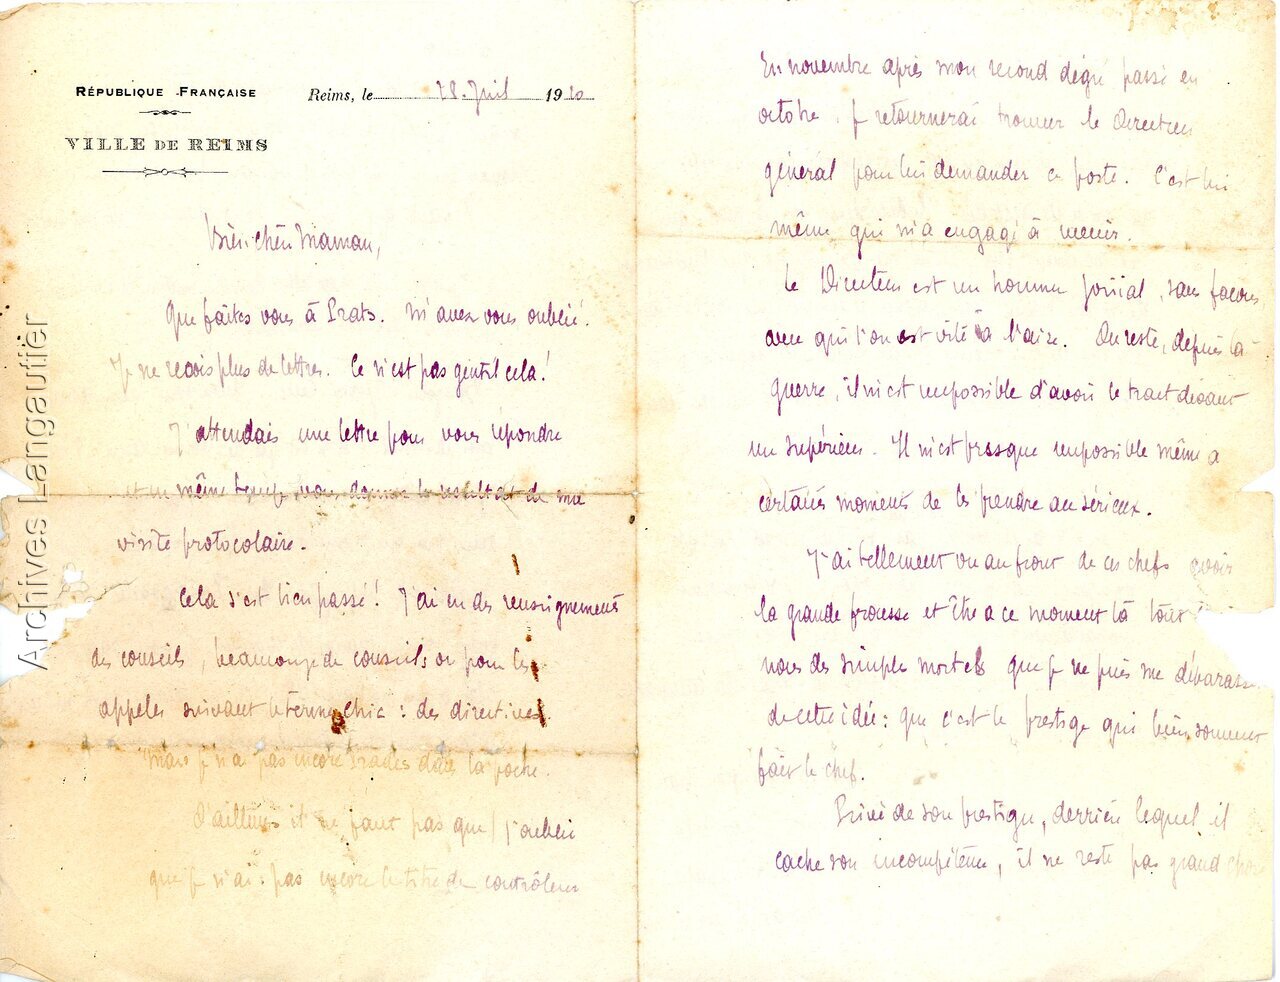 République Française
VILLE DE REIMS
Reims, le 28 Juil 1920
Très chère Maman,
Que faites vous à Prats. M'avez vous oublié!
Je ne reçois plus de lettres. Ce n'est pas gentil cela!
J'attendais une lettre pour vous répondre
et en même temps vous donner le résultat de ma
visite protocolaire.
Cela s'est bien passé! J'ai eu des renseignements
des conseils, beaucoup de conseils ou pour les
appeler suivant le terme chic: des directives.
Mais je n'ai pas encore Prades dans la poche.
D'ailleurs il ne faut pas que j'oublie
que je n'ai pas encore le titre de contrôleur
En novembre après mon second degré passé en
octobre. je retournerai trouver le Directeur
général pour lui demander ce poste. C'est lui
même qui m'a engagé à venir.
Le Directeur est un homme jovial, sans façons,
avec qui l'on est vite à l'aise. Du reste, depuis la
guerre, il m'est impossible d'avoir le trac devant
un supérieur. Il m'est presque impossible même à
certains moments de les prendre au sérieux.
J'ai tellement vu au front de ces chefs avoir
la grande frousse et être à ce moment là tout
nous des simples mortels que je ne puis me débarasser
de cette idée: que c'est le prestige qui bien souvent
fait le chef.
Privé de son prestige, derrière lequel il
cache son incompétence, il ne reste pas grand chose
Archives Langautier